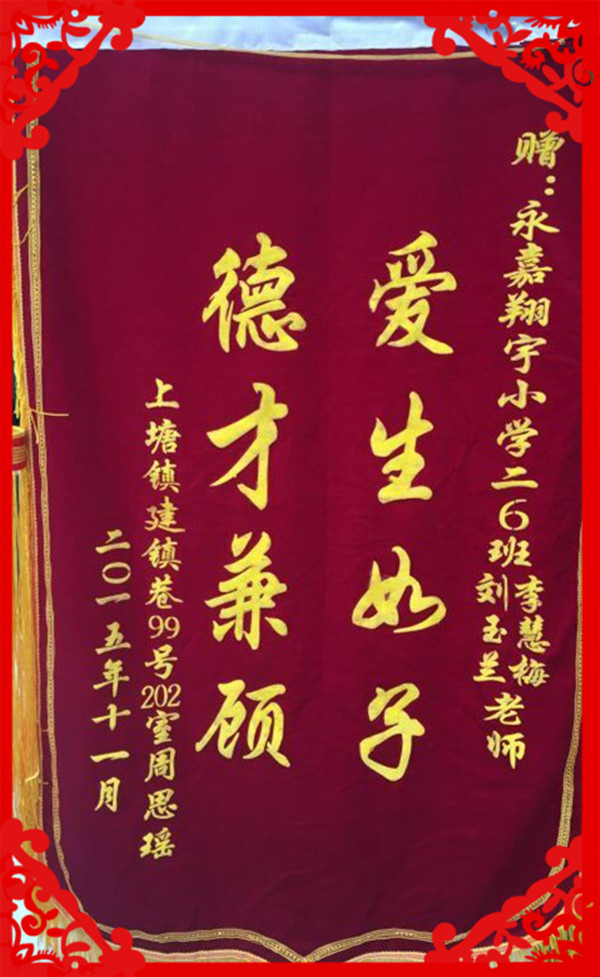 赠：永嘉翔宇小学二6班李慧梅
刘玉兰老师
爱生如子
德才兼顾
上塘镇建镇巷99号202室周思瑶
二〇一五年十一月